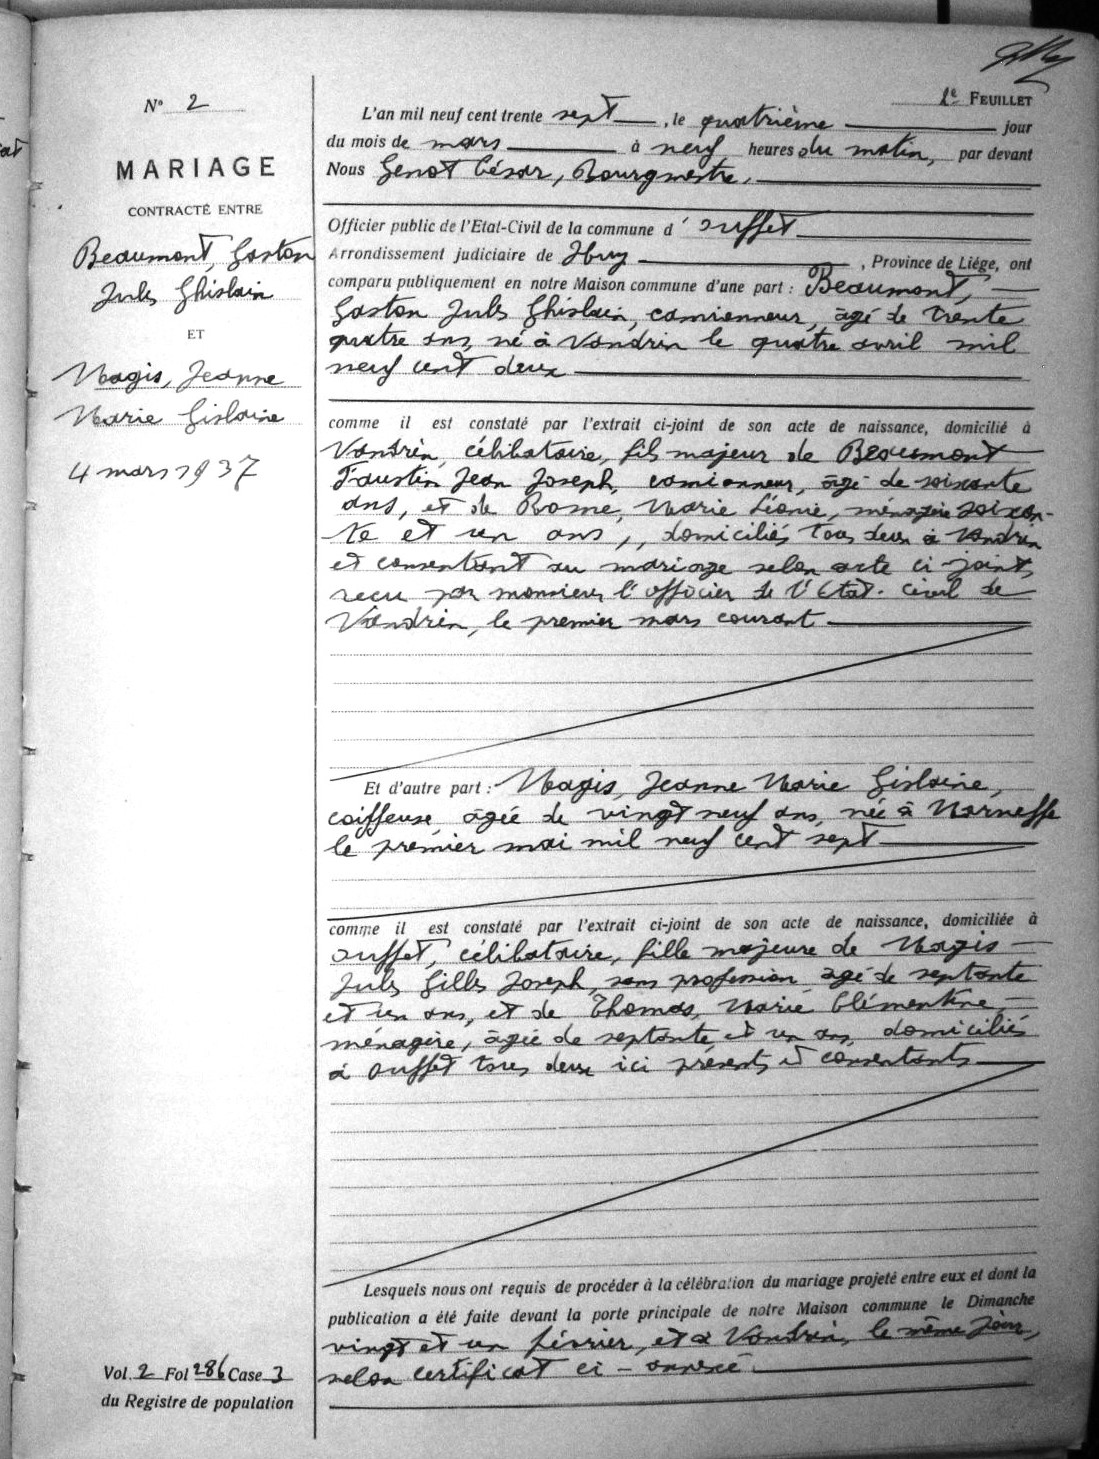 2e FEUILLET
N° 2
MARIAGE
CONTRACTÉ ENTRE
Beaumont, Gaston
Jules Ghislain
ET
Magis, Jeanne
Marie Gislaine
4 mars 1937
Vol. 2 Fol 286 Case 3
du Registre de population
L'an mil neuf cent trente sept, le quatrième jour
du mois de mars à neuf heures du matin, par devant
Nous Genot César, Bourgmestre.
Officier public de l'Etat-Civil de la commune d' Ouffet
Arrondissement judiciaire de Huy, Province de Liége, ont
comparu publiquement en notre Maison commune d'une part : Beaumont,
Gaston Jules Ghislain, camionneur, âgé de trente
quatre ans, né à Vandrin le quatre avril mil
neuf cent deux
comme il est constaté par l'extrait ci-joint de son acte de naissance, domicilié à
Vandrin, célibataire, fils majeur de Beaumont
Faustin Jean Joseph, camionneur, âgé de soixante
ans, et de Rome, Marie Léonie, ménagère soixan-
te et un ans, , domiciliés tous deux à Vandrin
et consentant au mariage selon acte ci-joint,
recu par monsieur l'officier de l'Etat-civil de
Vandrin, le premier mars courant
Et d'autre part : Magis, Jeanne Marie Gislaine,
coiffeuse, âgée de vingt neuf ans, née à Marneffe
le premier mai mil neuf cent sept
comme il est constaté par l'extrait ci-joint de son acte de naissance, domiciliée à
Ouffet, célibataire, fille majeure de Magis
Jules Gilles Joseph, sans profession, âgé de septante
et un ans, et de Thomas, Marie Clémentine,
ménagère, âgée de septante et un ans, domiciliés
à Ouffet tous deux ici présents et consentants
Lesquels nous ont requis de procéder à la célébration du mariage projeté entre eux et dont la
publication a été faite devant la porte principale de notre Maison commune le Dimanche
vingt et un février, et à Vandrin, le même jour,
selon certificat ci-annexé.